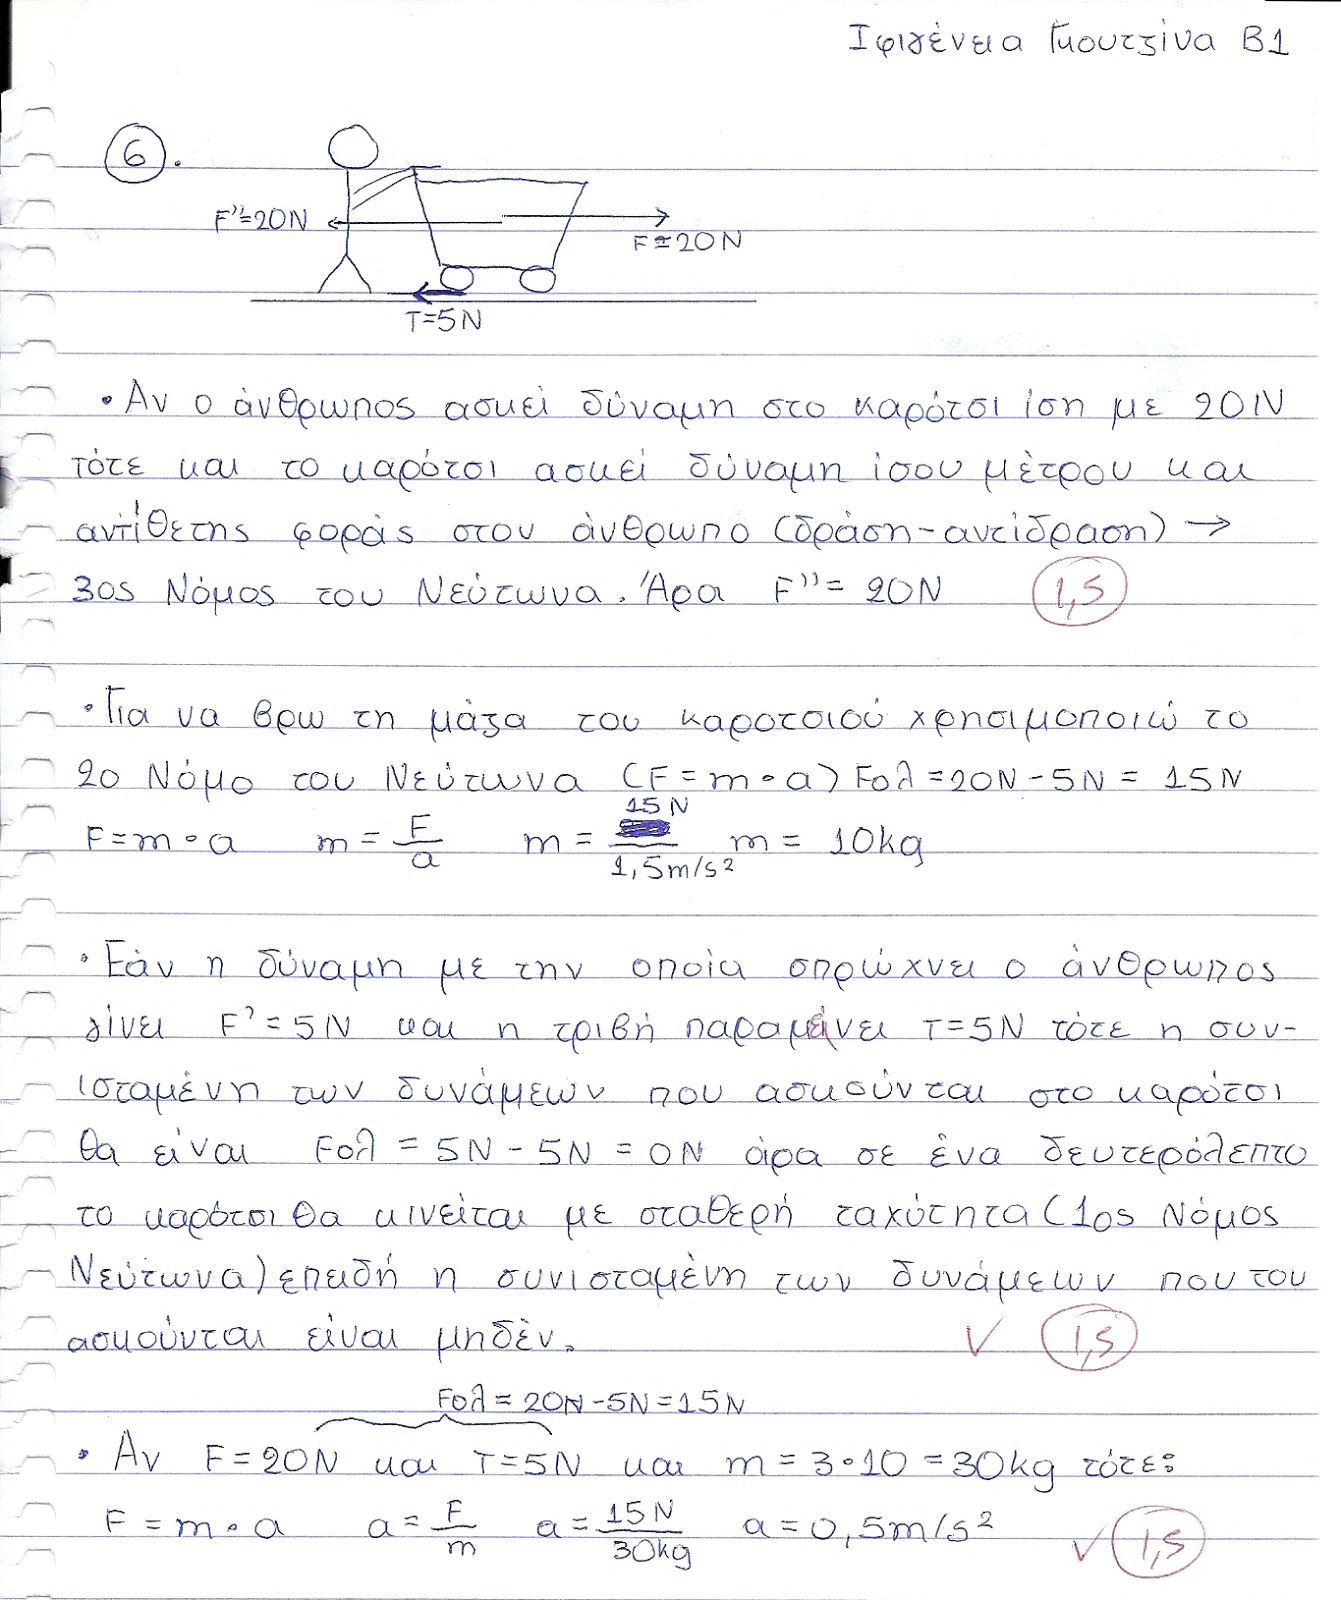 Ιφιγένεια Γκουτζίνα Β1
6.
F''=20N
F=20N
T=5N
• Αν ο άνθρωπος ασκεί δύναμη στο καρότσι ίση με 20N
τότε και το καρότσι ασκεί δύναμη ίσου μέτρου και
αντίθετης φοράς στον άνθρωπο (δράση-αντίδραση) →
3ος Νόμος του Νεύτωνα. Άρα F''= 20N 1,5
• Για να βρω τη μάζα του καροτσιού χρησιμοποιώ το
2ο Νόμο του Νεύτωνα (F=m•a) Fολ=20N-5N= 15N
F=m•a m=F/a m= 15N/1,5m/s² m= 10kg
• Εάν η δύναμη με την οποία σπρώχνει ο άνθρωπος
γίνει F'=5N και η τριβή παραμείνει T=5N τότε η συν-
ισταμένη των δυνάμεων που ασκούνται στο καρότσι
θα είναι Fολ = 5N-5N=0N άρα σε ένα δευτερόλεπτο
το καρότσι θα κινείται με σταθερή ταχύτητα (1ος Νόμος
Νεύτωνα) επειδή η συνισταμένη των δυνάμεων που του
ασκούνται είναι μηδέν. ✓ 1,5
Fολ= 20N-5N=15N
• Αν F=20N και T=5N και m=3•10=30kg τότε:
F=m•a a=F/m a=15N/30kg a=0,5m/s² ✓ 1,5